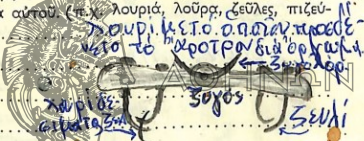 α αὐτοῦ. (π.χ. λουριά, λοῦρα, ζεῦλες, πιζεύ-
λουρί μὲ τὸ ὁποῖον προσδέ-
νετο τὸ ἄροτρον διὰ ὄργωμα
ζυγός
ζευλί
ΑΘΗΝΩΝ